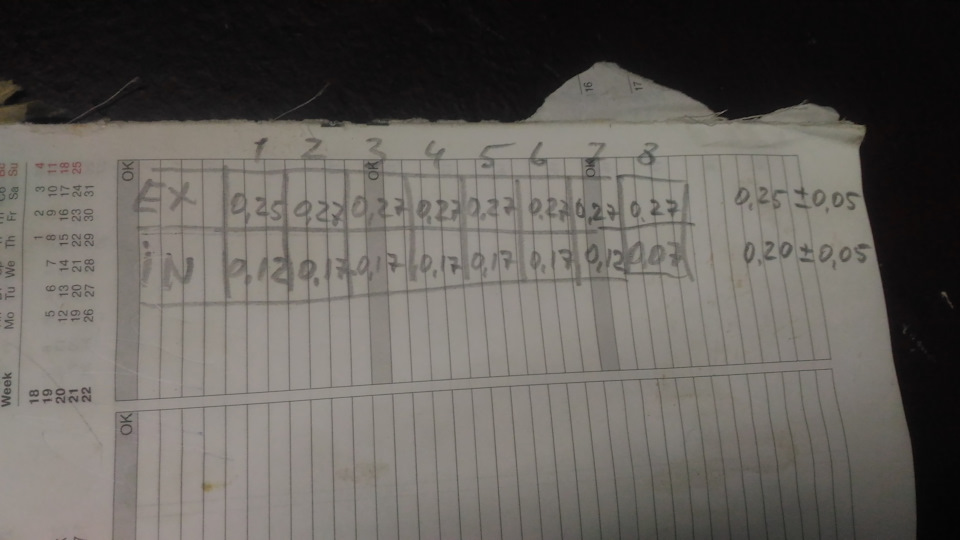 16 17
1 2 3 4 5 6 7 8
OK OK OK
EX 0,25 0,27 0,27 0,27 0,27 0,27 0,27 0,27 0,25 ±0,05
iN 0,12 0,17 0,17 0,17 0,17 0,17 0,12 0,07 0,20 ±0,05
OK
Week Mo Tu We Th Fr Sa Su
18 1 2 3 4
19 5 6 7 8 9 10 11
20 12 13 14 15 16 17 18
21 19 20 21 22 23 24 25
22 26 27 28 29 30 31